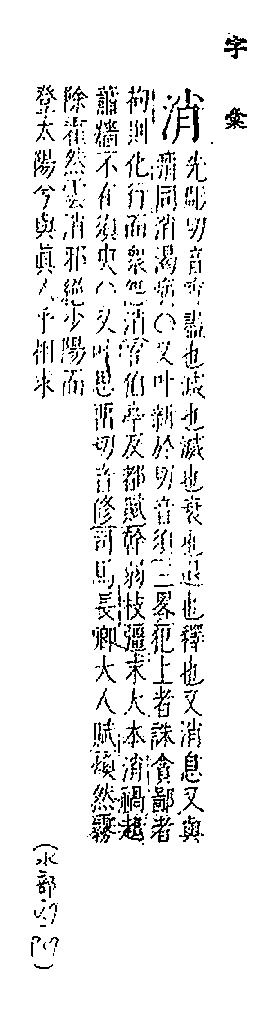 字彙
消 先彫切音宵盡也減也滅也衰也退也釋也又消息又與
痟同消渴病○又叶新於切音須三畧犯上者誅貪鄙者
拘則化行而衆惡消雷伯亭反都賦幹弱枝彊末大本消禍起
蕭墻不有須臾○又叶思留切音修司馬長卿大人賦煥然霧
除霍然雲消邪絶少陽而
登太陽兮與眞人乎相求
(水部